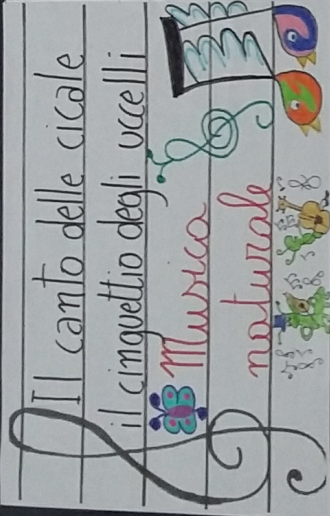 Il canto delle cicale
il cinguettio degli uccelli
Musica
naturale